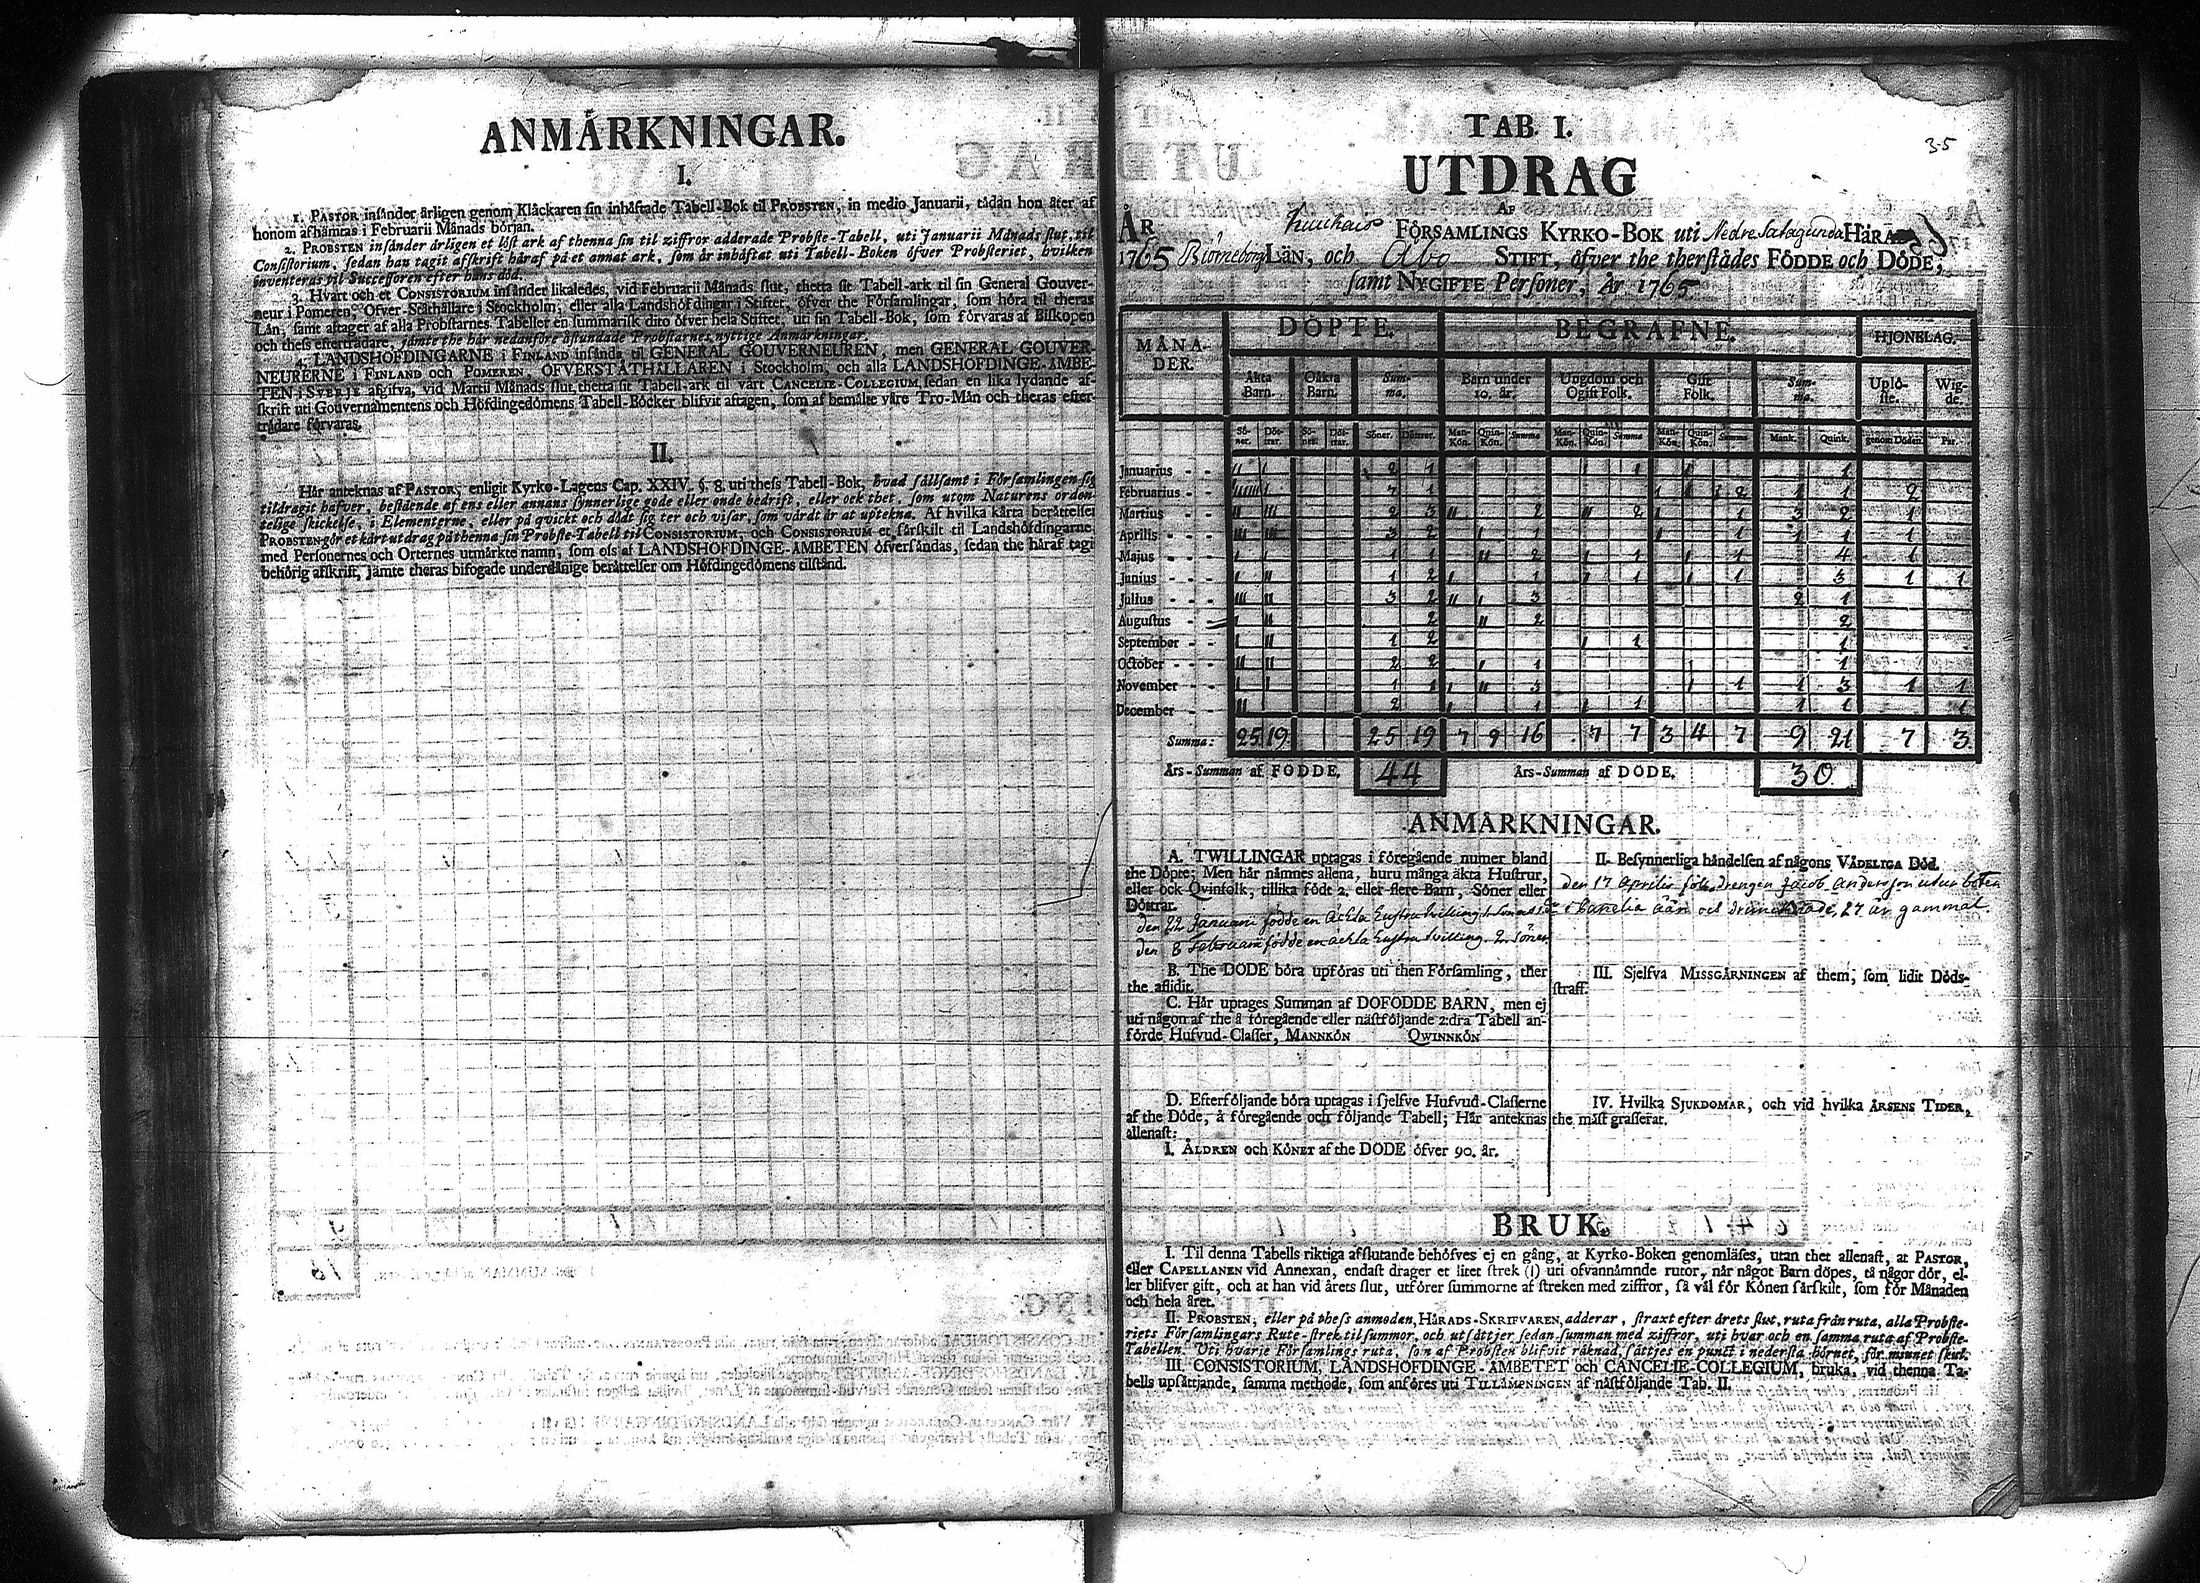 ANMÅRKNINGAR.
I.
1. PASTOR insånder årligen genom Klåckaren sin inhåftade Tabell-Bok til PROBSTEN, in medio Januarii, tådan hon åter af
honom afhåmtas i Februarii Månads början.
2. PROBSTEN insånder årligen et löst ark af thenna sin til ziffror adderade Probste-Tabell, uti Januarii Månads slut, til
Consistorium, sedan han tagit afskrift håraf på et annat ark, som år inhåftat uti Tabell-Boken öfver Probsteriet, hvilken
inventeras til Successoren efter hans död.
3. Hvart och et CONSISTORIUM insånder likaledes, vid Februarii Månads slut, thetta sit Tabell-ark til sin General Gouver-
neur i Pomeren, Öfver-Ståthållare i Stockholm, eller alla Landshöfdingar i Stifter, öfver the Församlingar, som höra til theras
Lån, samt aftager af alla Probstarnes Tabeller en summarisk dito öfver hela Stiftet, uti sin Tabell-Bok, som förvaras af Biskopen
och thess efterträdare, jämte the hår nedanföre åstundade Probstarnes nyttige Anmårkningar.
4. LANDSHÖFDINGARNE i FINLAND insånda til GENERAL GOUVERNEUREN, men GENERAL GOUVER-
NEURERNE i FINLAND och POMEREN, ÖFVERSTÅTHÅLLAREN i Stockholm, och alla LANDSHÖFDINGE-ÅMBE-
TEN i SVERJE afgifva, vid Martii Månads slut thetta sit Tabell-ark til vårt CANCELIE-COLLEGIUM, sedan en lika lydande af-
skrift uti Gouvernamentens och Höfdingedömens Tabell-Böcker blifvit aftagen, som af bemålte våre Tro-Mån och theras efter-
trådare förvaras.
II.
Hår anteknas af PASTOR, enligit Kyrko-Lagens Cap. XXIV. §. 8. uti thess Tabell-Bok, hvad sållsamt i Församlingen sig
tildragit hafver, bestående af ens eller annans synnerlige gode eller onde bedrift, eller ock thet, som utom Naturens orden-
telige skickelse, i Elementerne, eller på qvickt och dödt sig ter och visar, som vårdt år at uptekna. Af hvilka kårta beråttelser
PROBSTEN gör et kårt utdrag på thenna sin Probste-Tabell til CONSISTORIUM, och CONSISTORIUM et sårskilt til Landshöfdingarne
med Personernes och Orternes utmårkte namn, som oss af LANDSHÖFDINGE-ÅMBETEN öfversåndas, sedan the håraf tagit
behörig afskrift, jåmte theras bifogade underdånige beråttelser om Höfdingedömens tilstånd.
TAB. I.
35
UTDRAG
AF
ÅR FÖRSAMLINGS KYRKO-BOK uti Nedre Satagunda HÄRAD
1765 Biörneborgs LÄN, och Åbo STIFT, öfver the therstådes FÖDDE och DÖDE,
samt NYGIFTE Personer, År 1765
MÅNA- DER. DÖPTE. BEGRAFNE. HJONELAG.
Åkta Barn. Oåkta Barn. Sum- ma. Barn under 10. år. Ungdom och Ogift Folk. Gift Folk. Sum- ma. Uplö- ste. Wig- de.
Sö- ner. Döt- trar. Sö- ner. Döt- trar. Söner. Döttrar. Man- Kön. Quin- Kön. Summa Man- Kön. Quin- Kön. Summa Man- Kön. Quin- Kön. Summa Mank. Quink. genom Döden Par.
Januarius - - II I 2 1 I 1 I 1
Februarius - - IIIIIII I 7 1 I I 2 1 1 2
Martius - - II III 2 3 II 2 II 2 I 1 3 2 1
Aprilis - - - III II 3 2 I 1 I 1 1 1 1
Majus - - - I I 1 1 II 2 I 1 I 1 4 1
Junius - - - I II 1 2 I 1 I 1 I 1 3 1 1
Julius - - - III II 3 2 II I 3 2 1
Augustus - I II 2 II 2 2
September - - I II 1 2 I 1 1
October - - - II II 2 2 I 1 1
November - - I I 1 1 I II 3 I 1 1 3 1 1
December - - II 2 I 1 I 1 1 1 1
Summa: 25 19 25 19 7 9 16 7 7 3 4 7 9 21 7 3
Års-Summan af FÖDDE. 44 Års-Summan af DÖDE. 30
ANMÅRKNINGAR.
A. TWILLINGAR uptagas i föregående numer bland
the Döpte; Men hår nåmnes allena, huru många åkta Hustrur,
eller ock Qvinfolk, tillika födt 2. eller flere Barn, Söner eller
Döttrar.
den 22 Januarii födde en ächta hustru tvilling
den 8 Februarii födde en ächta hustru tvilling 2. söner
B. The DÖDE böra upföras uti then Församling, ther
the aflidit.
C. Hår uptages Summan af DÖFÖDDE BARN, men ej
uti någon af the å föregående eller nåstföljande 2:dra Tabell an-
förde Hufvud-Classer, MANNKÖN QWINNKÖN
D. Efterföljande böra uptagas i sjelfve Hufvud-Classerne
af the Döde, å föregående och följande Tabell; Hår anteknas
allenast:
I. ÅLDREN och KÖNET af the DÖDE öfver 90. år.
II. Besynnerliga håndelsen af någons VÅDELIGA Död.
den 17 Aprilis föll drengen Jacob Andersson utur båten
i åån och drunknade, 27 år gammal.
III. Sjelfva MISSGÅRNINGEN af them, som lidit Döds-
straff.
IV. Hvilka SJUKDOMAR, och vid hvilka ÅRSENS TIDER,
the måst grasserat.
BRUK.
I. Til denna Tabells riktiga afslutande behöfves ej en gång, at Kyrko-Boken genomläses, utan thet allenast, at PASTOR,
eller CAPELLANEN vid Annexan, endast drager et litet strek (I) uti ofvannåmnde rutor, når något Barn döpes, tå någor dör, el-
ler blifver gift, och at han vid årets slut, utförer summorne af streken med ziffror, så vål för Könen sårskilt, som för Månaden
och hela året.
II. PROBSTEN, eller på thess anmodan, HÅRADS-SKRIFVAREN, adderar, straxt efter årets slut, ruta från ruta, alla Probste-
riets Församlingars Rute-strek til summor, och utsåttjer sedan summan med ziffror, uti hvar och en samma ruta af Probste-
Tabellen. Uti hvarje Församlings ruta, som af Probsten blifvit råknad, såttjes en punct i nedersta hörnet, för misnet skul.
III. CONSISTORIUM, LANDSHÖFDINGE-ÅMBETET och CANCELIE-COLLEGIUM, bruka, vid thenna Ta-
bells upsåttjande, samma methode, som anföres uti TILLÅMPNINGEN af nåstföljande Tab. II.